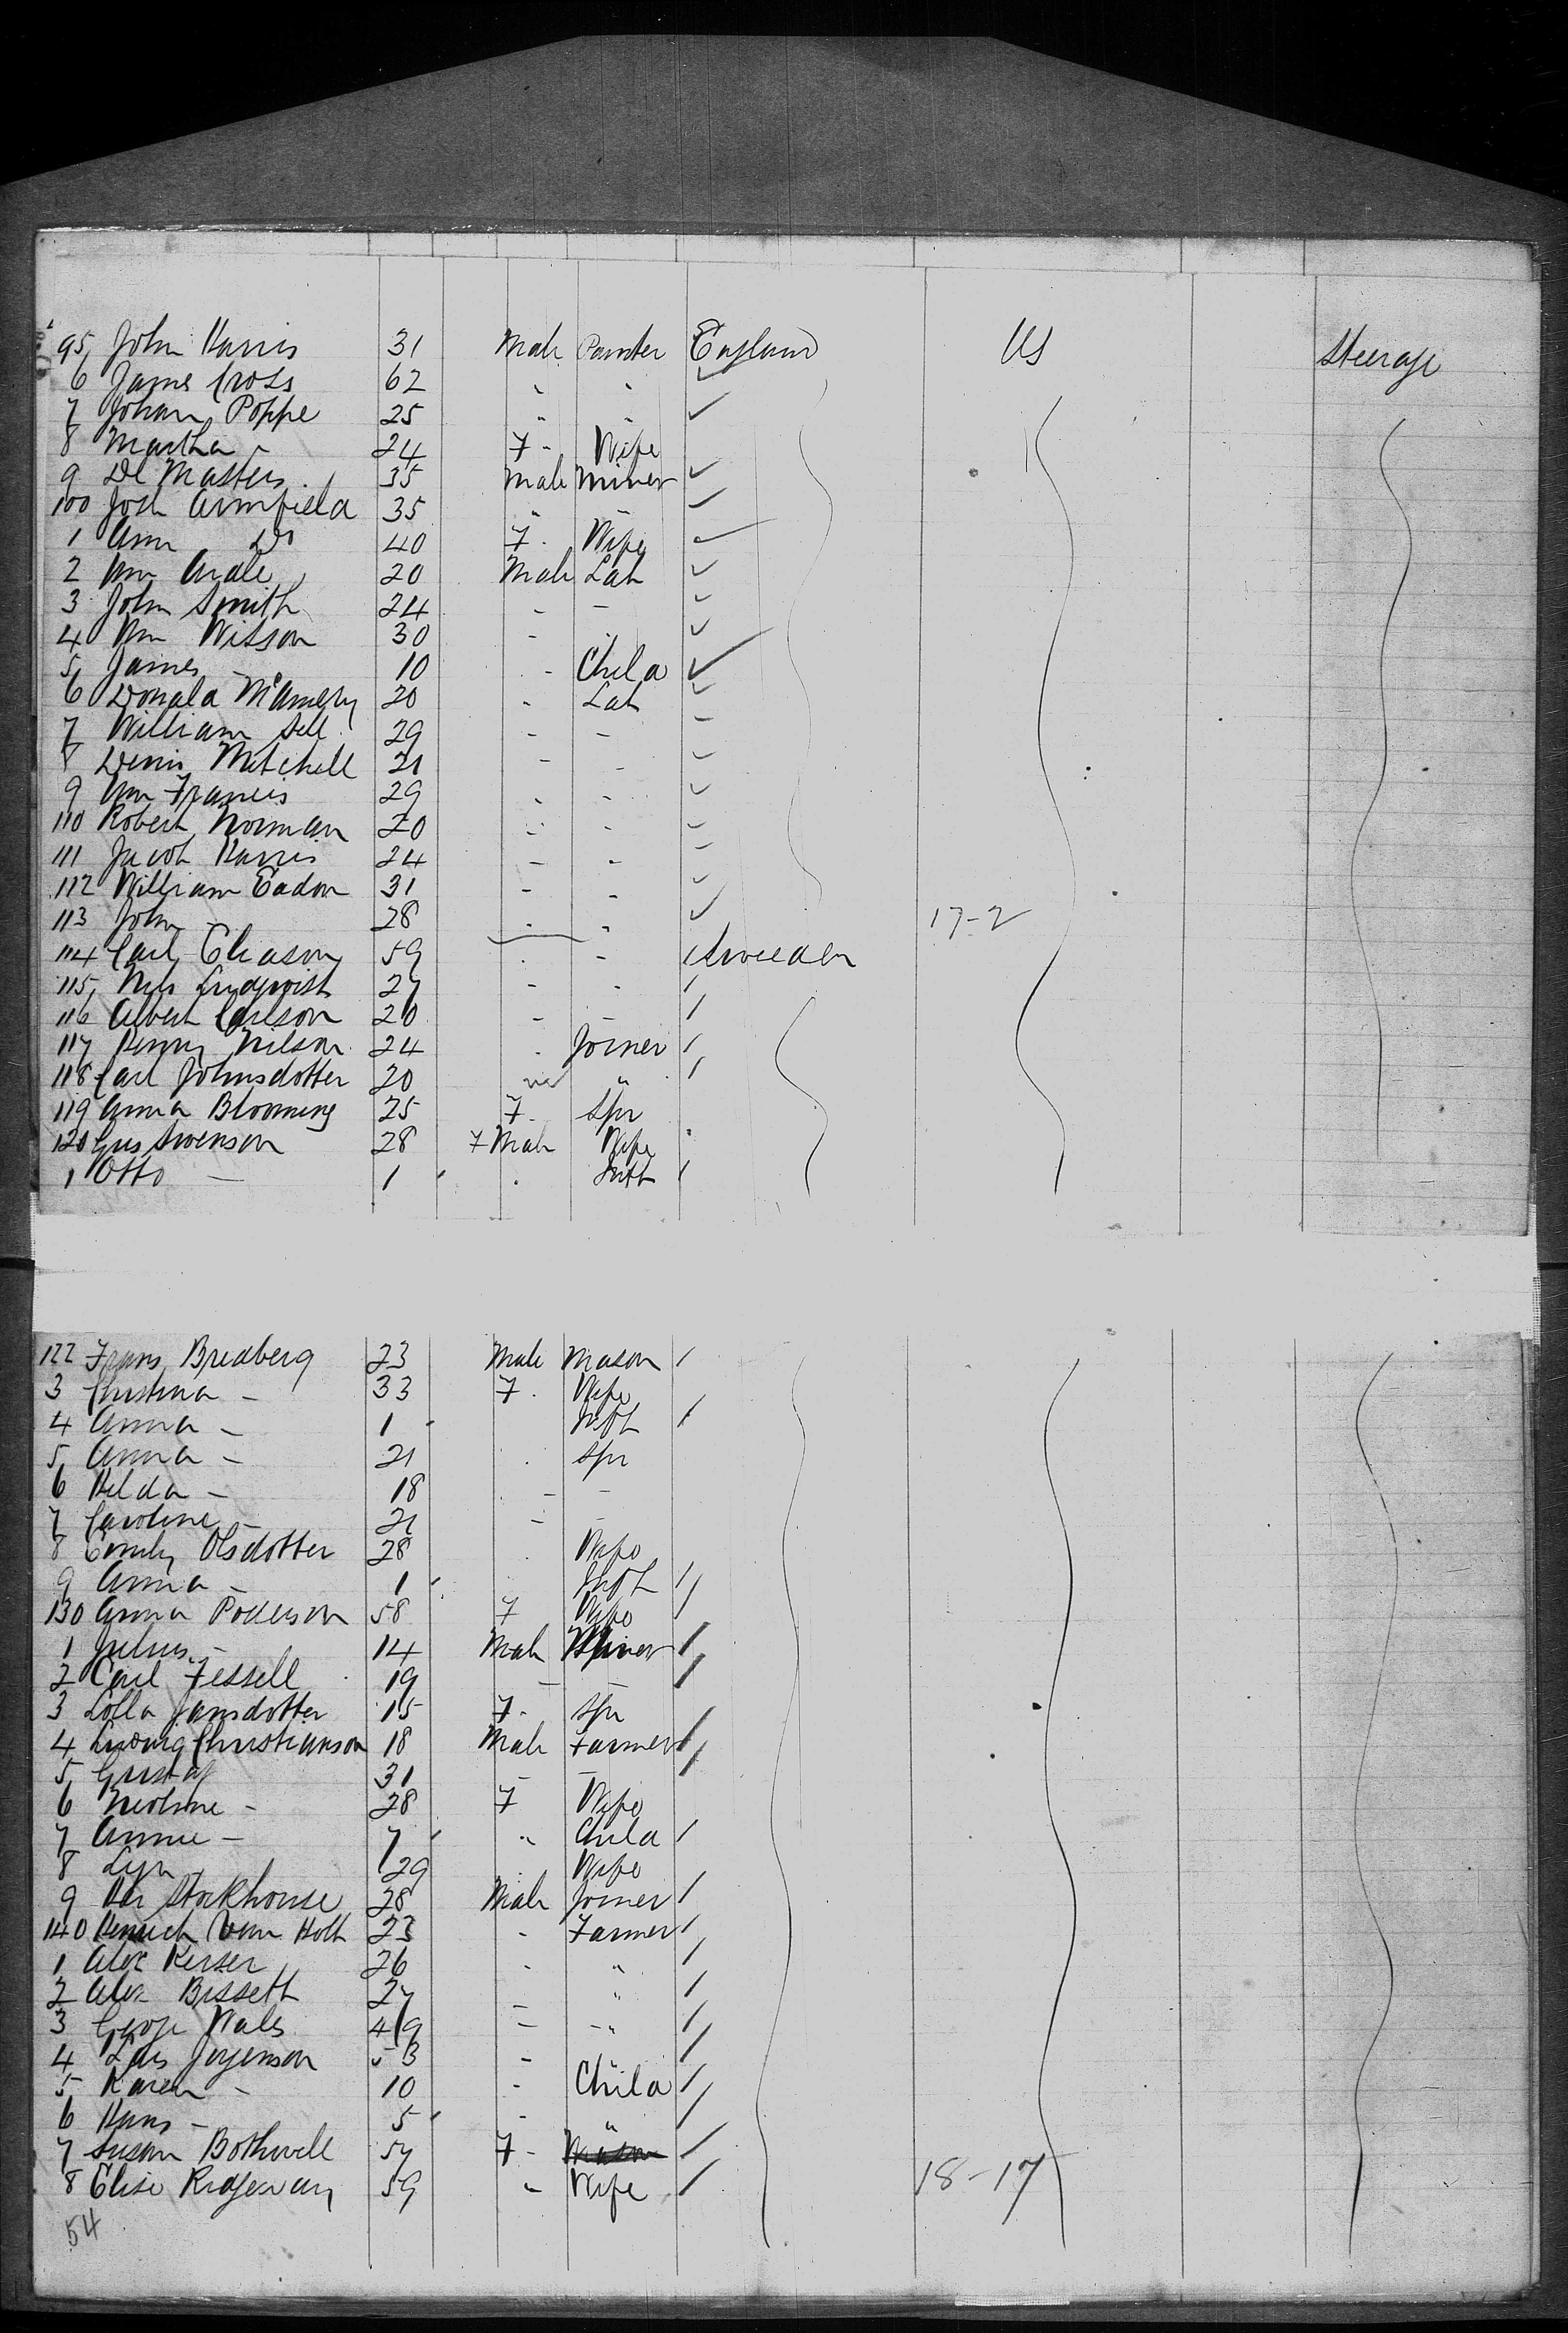 95 John Harris 31 Male Painter England US Steerage
6 James Cross 62 " "
7 Johan Poppe 25 " "
8 Martha - 24 F - Wife
9 De Masters 35 Male Miner
100 Josh Armfield 35 " -
1 Ann Do 40 F - Wife
2 Wm 20 Male Lab
3 John Smith 24 - -
4 Wm Wisson 30 - -
5 James - 10 - Child
6 Donald 20 - Lab
7 William Sell 29 - -
8 Denis Mitchell 21 - -
9 Wm Francis 29 - -
110 Robert Norman 20 - -
111 Jacob Harris 24 - -
112 William Eadon 31 - -
113 John - 28 - - 17-2
114 Carl Gleason 59 - - Sweeden
115 Nils Lindqvist 27 - -
116 Albert Carlson 20 - -
117 Henny Nilson 24 - Joiner
118 Carl Johnsdotter 20 "
119 Anna Blooming 25 F - Spr
120 Gus Swenson 28 F Male Wife
1 Otto - 1 - Inft
122 Frans Bredberg 23 Male Mason
3 Christina - 33 F - Wife
4 Anna - 1 Inft
5 Anna - 21 - Spr
6 Hilda - 18 - -
7 Caroline - 21 - -
8 Emily Olsdotter 28 - Wife
9 Anna - 1 - Inft
130 Anna Pederson 58 F Wife
1 Julius - 14 Male Miner
2 Carl Fessell 19 - -
3 Lolla Jansdotter 15 F - Spr
4 Ludwig Christianson 18 Male Farmer
5 Gustaf 31 - -
6 - 28 F Wife
7 Annie - 7 " Child
8 29 - Wife
9 Stockhouse 28 Male Joiner
140 Henrich Von Holt 23 - Farmer
1 Alex Kerser 26 - "
2 Alex Bissett 27 - "
3 George Wales 49 - - "
4 Lars Jorgenson 53 - "
5 Karen - 10 - Child
6 Hans - 5 - "
7 Susan Bothwell 57 F - Mason
8 Elise Ridgeway 59 " Wife 18-17
54